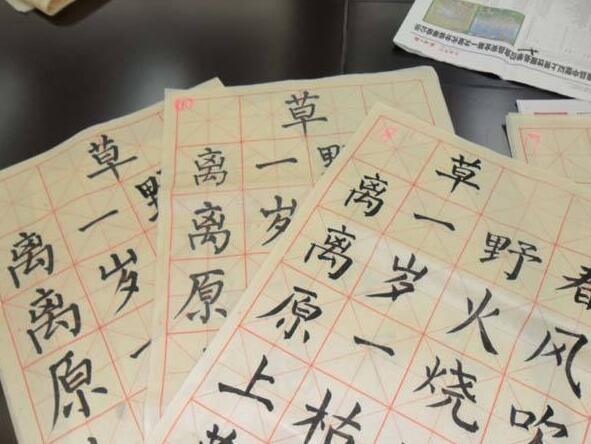 草
离离原
一岁一
野
草
离离原
一岁
野
草
离离原上
一岁一枯
野火烧
春风吹